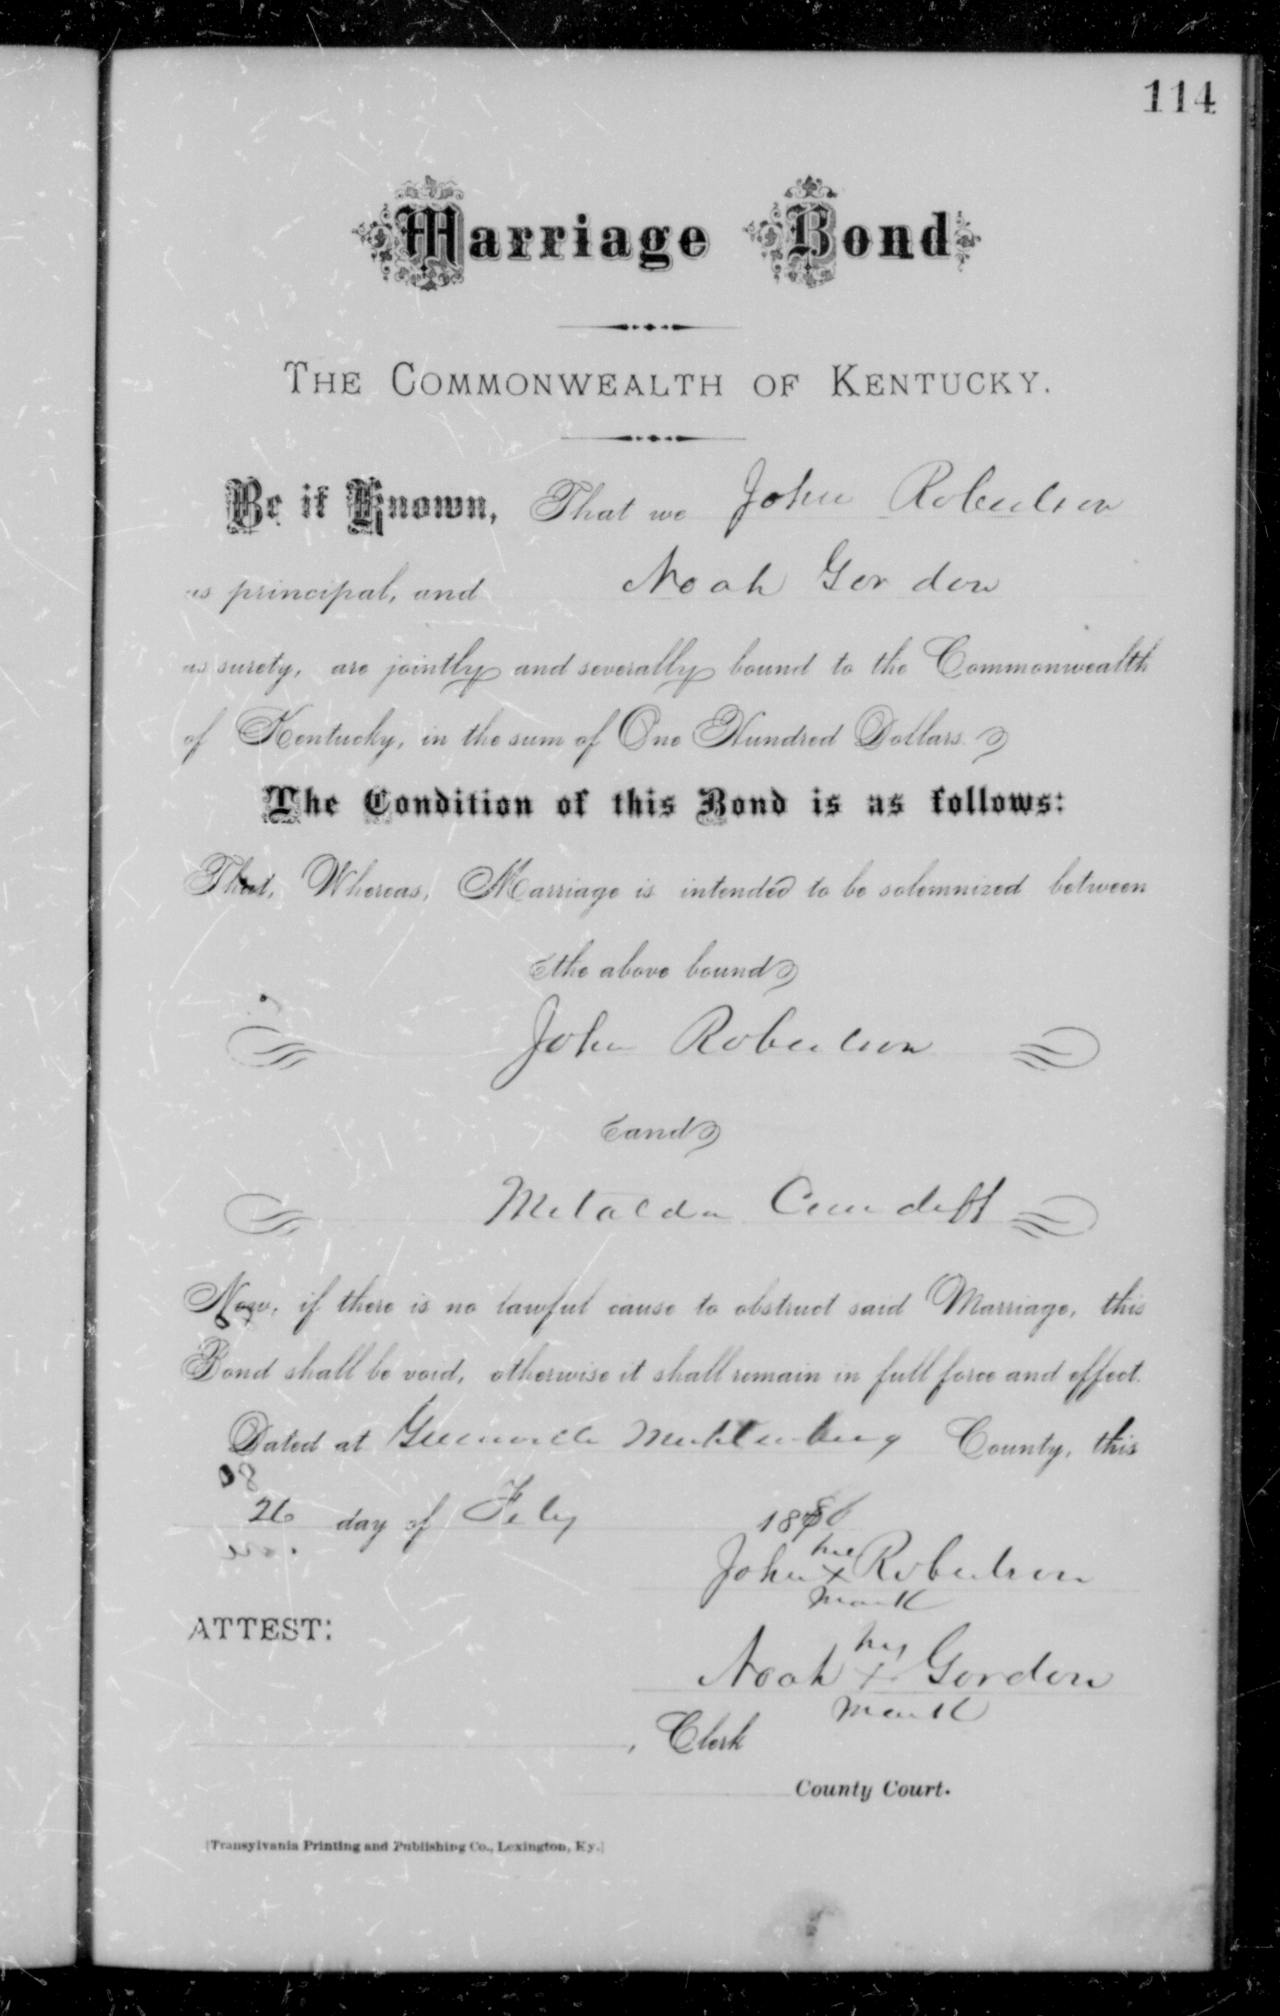 114
Marriage Bond
THE COMMONWEALTH OF KENTUCKY.
Be it Known, That we John Robertson
as principal, and Noah Gordon
as surety, are jointly and severally bound to the Commonwealth
of Kentucky, in the sum of One Hundred Dollars.
The Condition of this Bond is as follows:
That, Whereas, Marriage is intended to be solemnized between
the above bound
John Robertson
and
Metalda Cundiff
Now, if there is no lawful cause to obstruct said Marriage, this
Bond shall be void, otherwise it shall remain in full force and effect.
Dated at Greenville Muhlenberg County, this
26 day of Feby 1886
his
John x Robertson
mark
ATTEST:
his
Noah x Gordon
mark
, Clerk
County Court.
[Transylvania Printing and Publishing Co., Lexington, Ky.]